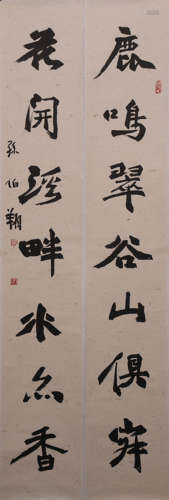 鹿鳴翠谷山俱寂
花開溪畔水亦香
孫伯翔